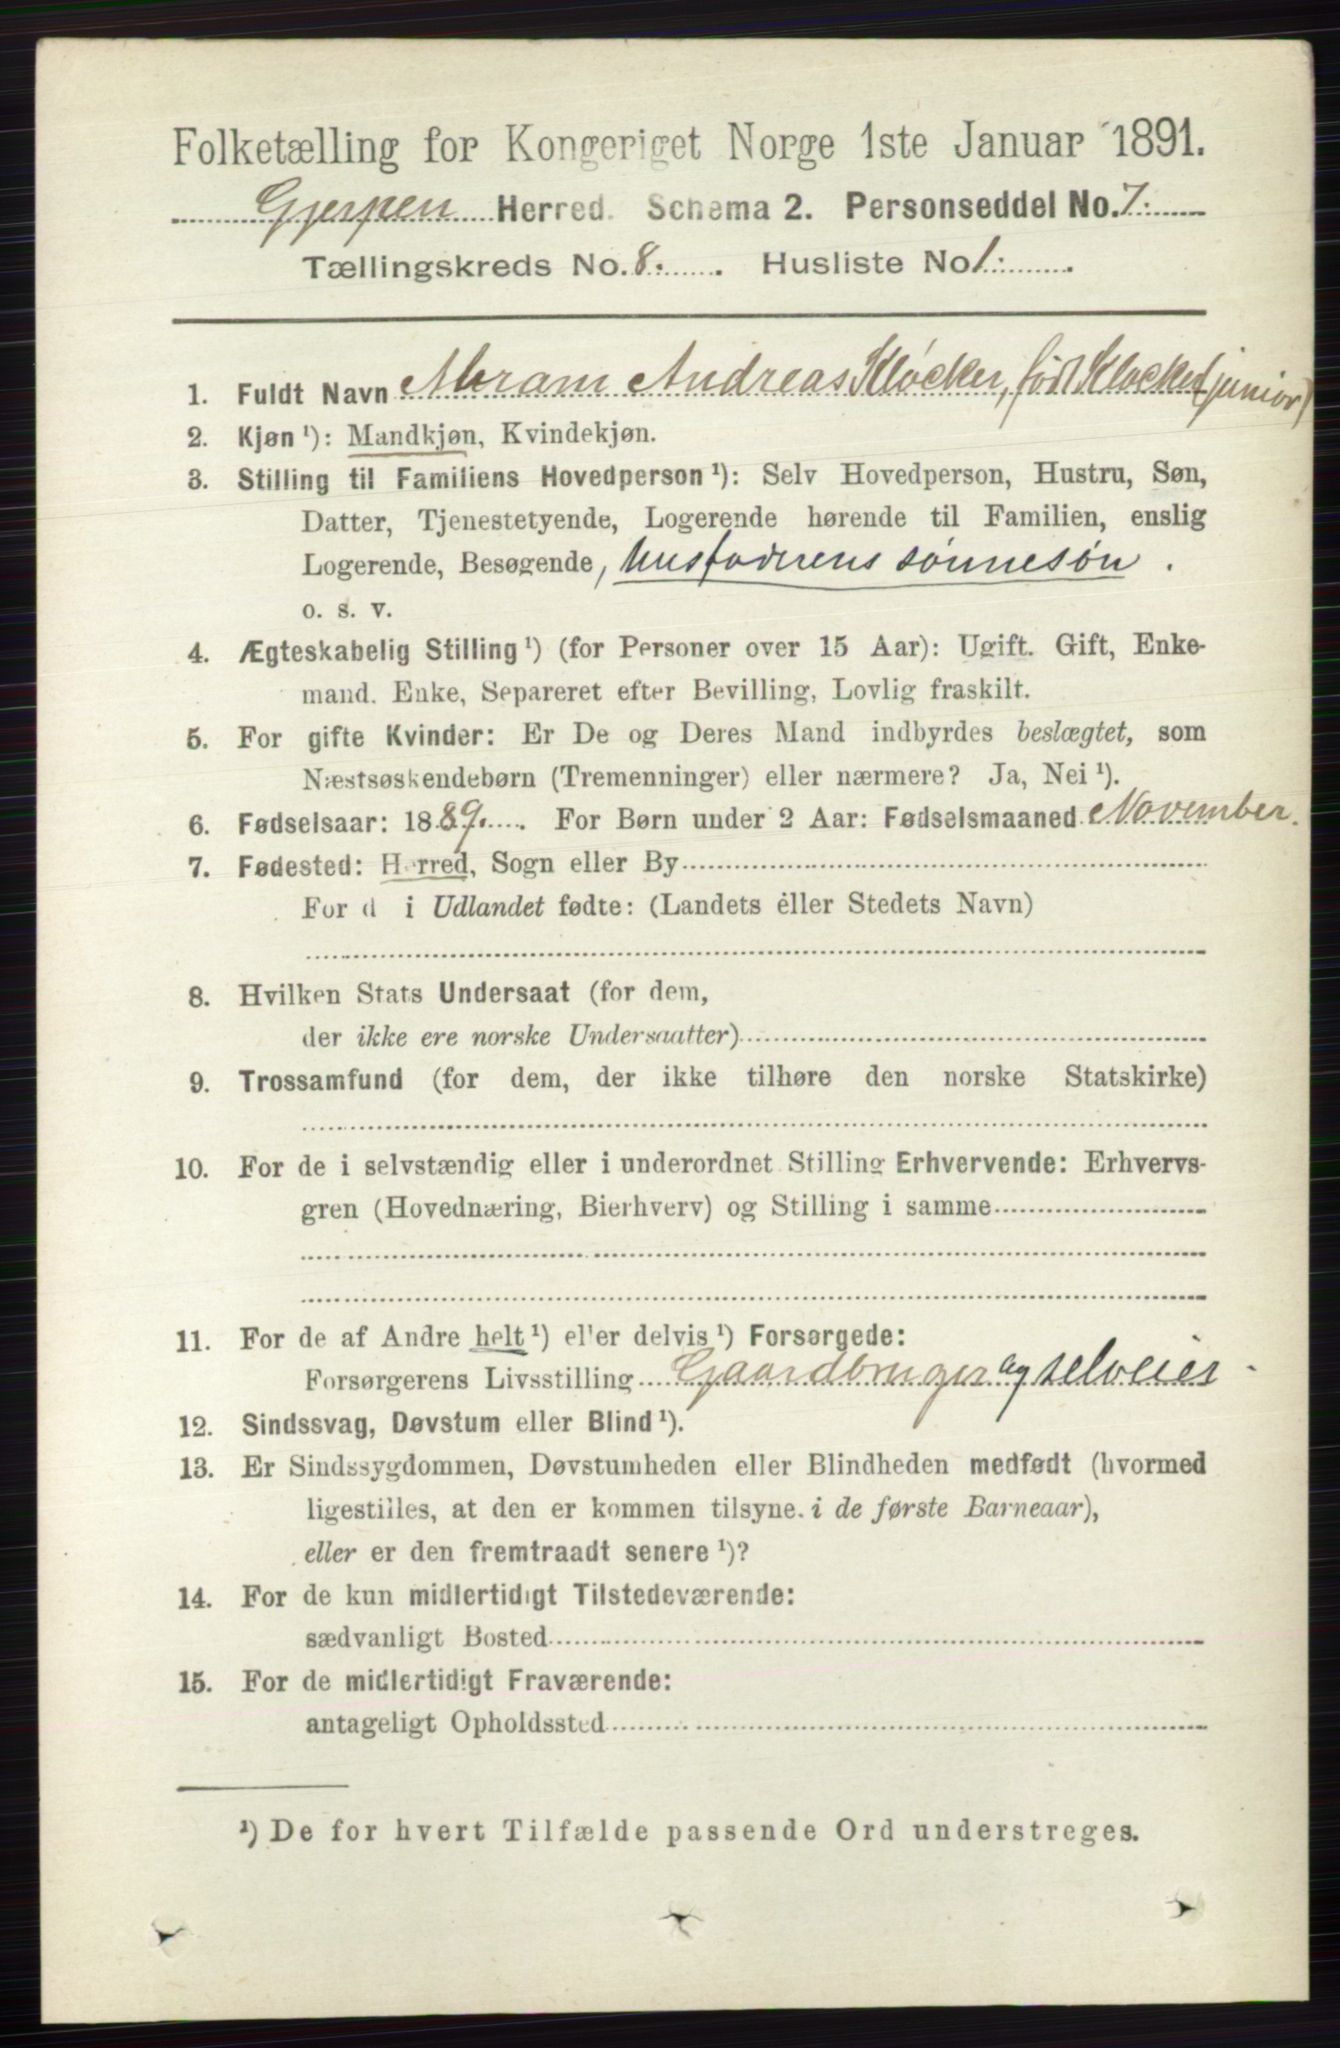 Folketælling for Kongeriget Norge 1ste Januar 1891.
Gjerpen Herred. Schema 2. Personseddel No. 7.
Tællingskreds No. 8. Husliste No 1.
1. Fuldt Navn Abram Andreas Kløcker, født Kløcker (junior)
2. Kjøn ¹): Mandkjøn, Kvindekjøn.
3. Stilling til Familiens Hovedperson ¹): Selv Hovedperson, Hustru, Søn,
Datter, Tjenestetyende, Logerende hørende til Familien, enslig
Logerende, Besøgende, Husfaderens sønnesøn.
o. s. v.
4. Ægteskabelig Stilling ¹) (for Personer over 15 Aar): Ugift. Gift, Enke-
mand. Enke, Separeret efter Bevilling, Lovlig fraskilt.
5. For gifte Kvinder: Er De og Deres Mand indbyrdes beslægtet, som
Næstsøskendebørn (Tremenninger) eller nærmere? Ja, Nei ¹).
6. Fødselsaar: 1889. For Børn under 2 Aar: Fødselsmaaned November.
7. Fødested: Herred, Sogn eller By
For d i Udlandet fødte: (Landets eller Stedets Navn)
8. Hvilken Stats Undersaat (for dem,
der ikke ere norske Undersaatter)
9. Trossamfund (for dem, der ikke tilhøre den norske Statskirke)
10. For de i selvstændig eller i underordnet Stilling Erhvervende: Erhvervs-
gren (Hovednæring, Bierhverv) og Stilling i samme
11. For de af Andre helt ¹) el'er delvis ¹) Forsørgede:
Forsørgerens Livsstilling Gaardbruger og selveier
12. Sindssvag, Døvstum eller Blind ¹).
13. Er Sindssygdommen, Døvstumheden eller Blindheden medfødt (hvormed
ligestilles, at den er kommen tilsyne. i de første Barneaar),
eller er den fremtraadt senere ¹)?
14. For de kun midlertidigt Tilstedeværende:
sædvanligt Bosted
15. For de midlertidigt Fraværende:
antageligt Opholdssted
¹) De for hvert Tilfælde passende Ord understreges.